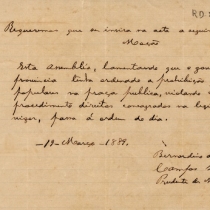 RD.
Requeremos que se insira na acta a seguinte
Moção
Esta Assemblea, lamentando que o gov
provincia tenha ordenado a prohibição
popular na praça publica, violando
procedimento direitos consagrados na leg
vigor, passa á ordem do dia.
-19-Março-1889.
Bernardino de
Campos
Prudente de M